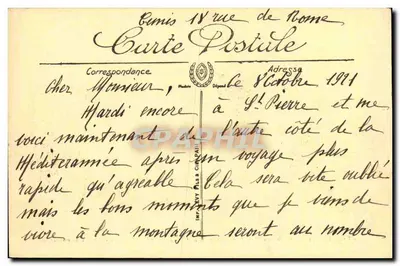 Tunis 18 rue de Rome
Carte Postale
Correspondance Adresse
Cher Monsieur, Ce 8 Octobre 1921
Mardi encore à St Pierre et me
voici maintenant de l'autre côté de la
Méditerrannée après un voyage plus
rapide qu'agréable. Cela sera vite oublié
mais les bons moments que je viens de
vivre à la montagne seront au nombre